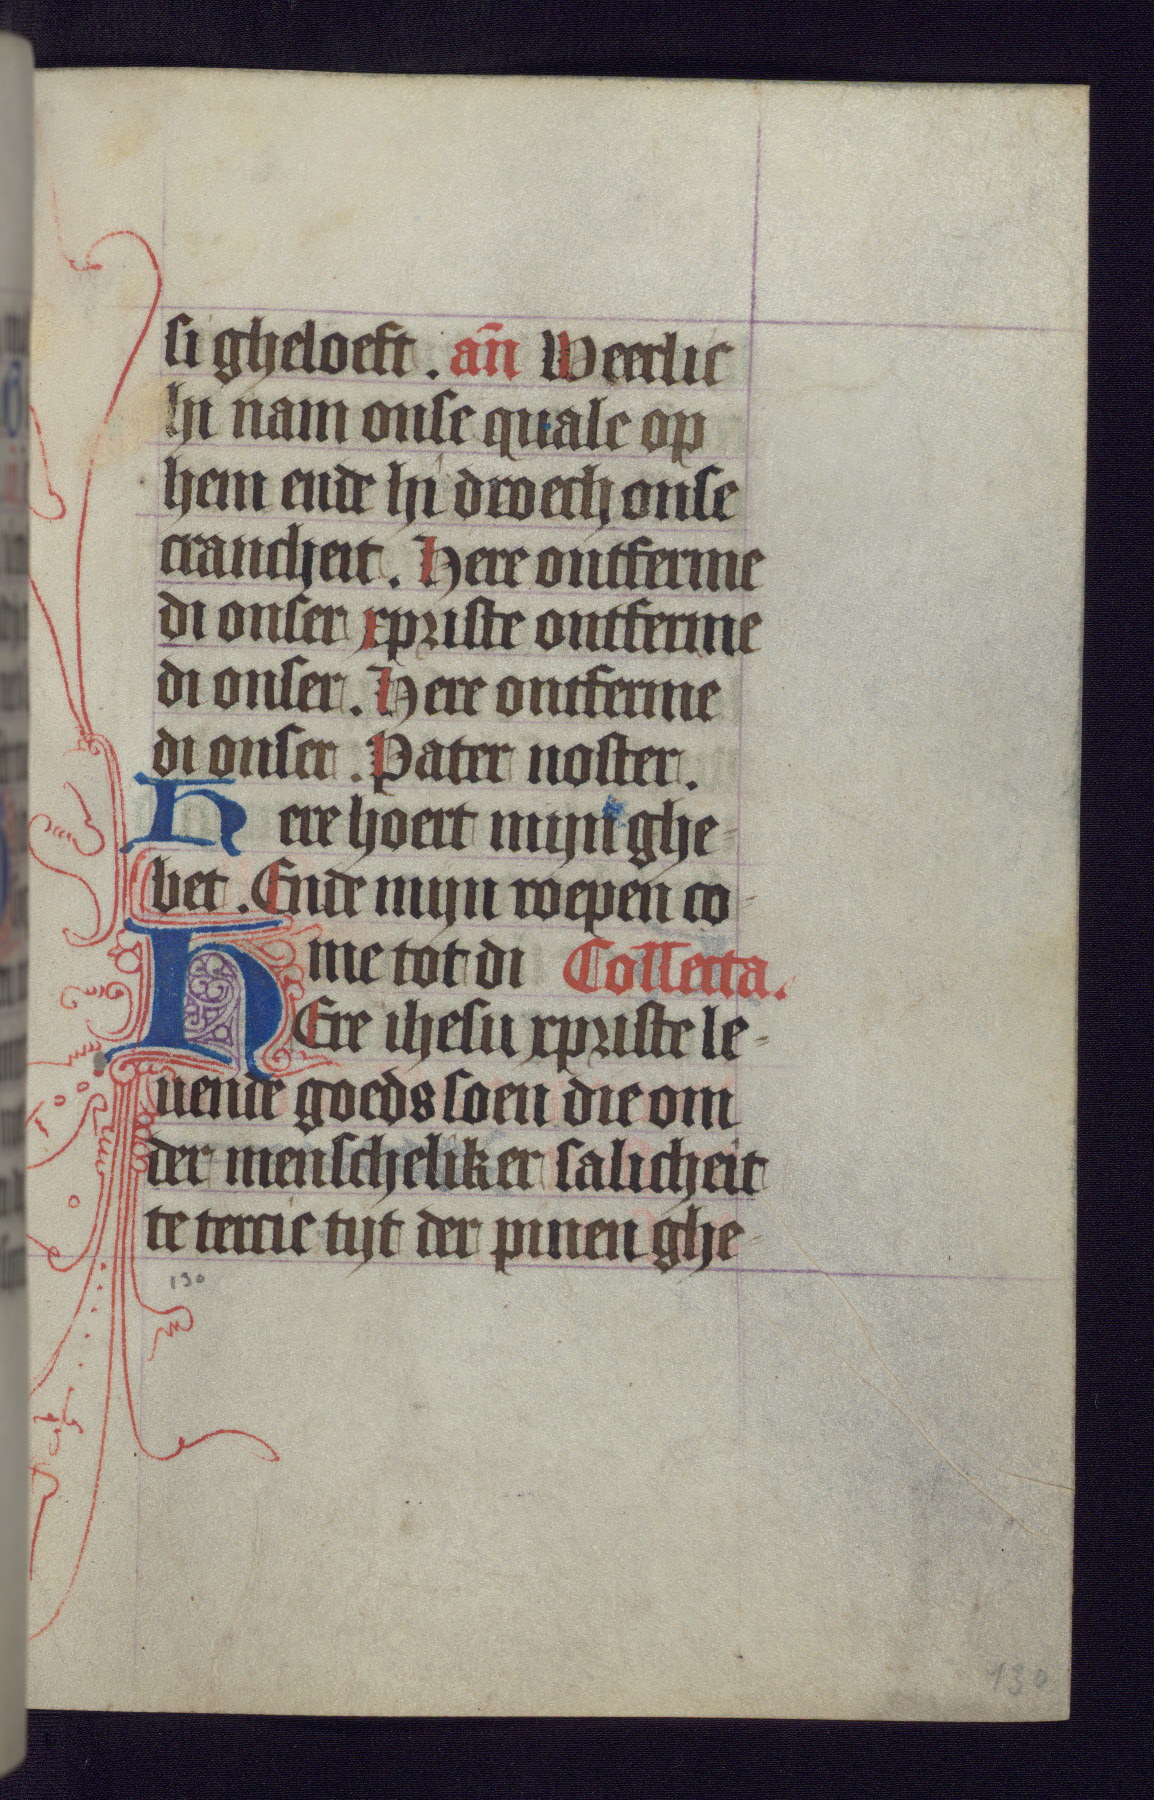 si gheloeft . an̄ Weerlic
hi nam onse quale op
hem ende hi droech onse
crancheit . Here ontferme
di onser xpriste ontferme
di onser . Here ontferme
di onser . Pater noster .
Here hoert mijn ghe-
bet . Ende mijn roepen co-
me tot di Collecta .
HEre ihesu xpriste le-
uende goeds soen die om
der menscheliker salicheit
te tercie tijt der pinen ghe-
130
130